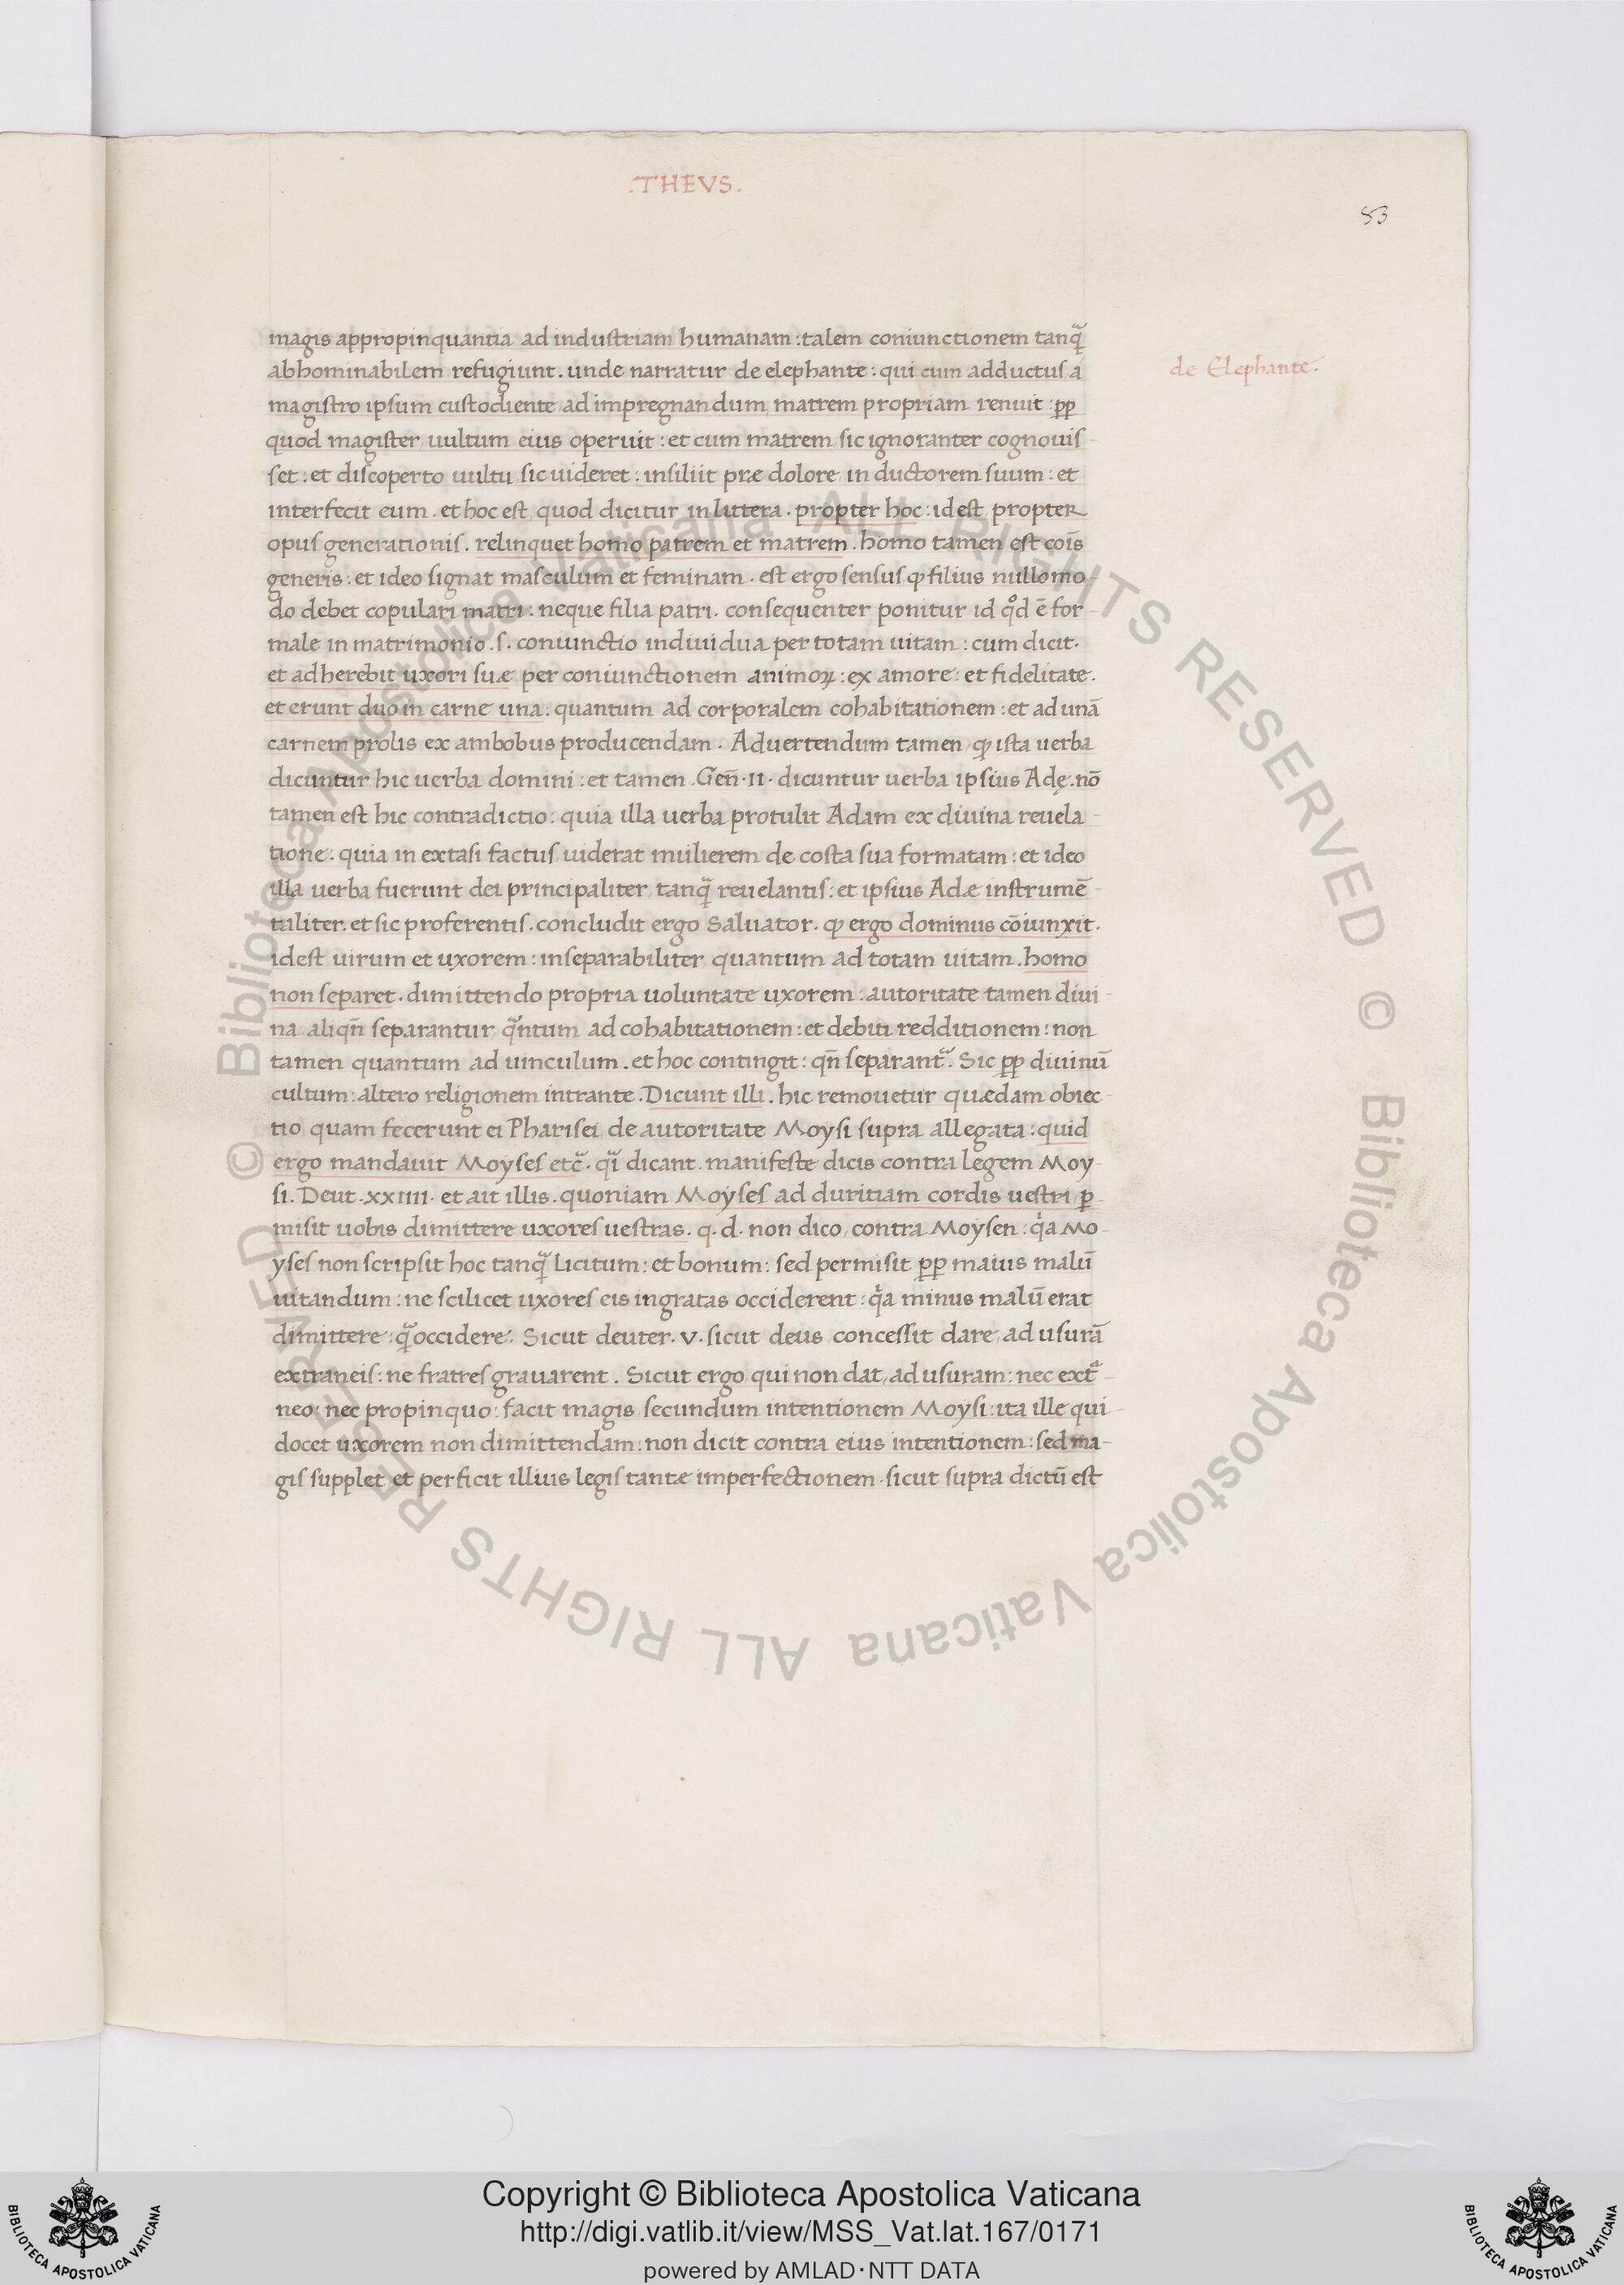 .THEVS.
83
magis appropinquantia ad industriam humanam : talem coniunctionem tanq̃
abhominabilem refugiunt . unde narratur de elephante : qui cum adductus a
de Elephante .
magistro ipsum custodiente ad impregnandum matrem propriam renuit : ꝓp
quod magister uultum eius operuit : et cum matrem sic ignoranter cognouis-
set : et discoperto uultu sic uideret : insiliit præ dolore in ductorem suum : et
interfecit eum . et hoc est quod dicitur in littera . propter hoc : idest propter
opus generationis . relinquet homo patrem et matrem . homo tamen est cois̄
generis : et ideo signat masculum et feminam . est ergo sensus ꝙ filius nullo mo-
do debet copulari matri : neque filia patri . consequenter ponitur id qd̊ ē for-
male in matrimonio . s . coniunctio indiuidua per totam uitam : cum dicit .
et adherebit uxori suæ per coniunctionem animoꝝ : ex amore : et fidelitate .
et erunt duo in carne una : quantum ad corporalem cohabitationem : et ad unā
carnem prolis ex ambobus producendam . Aduertendum tamen ꝙ ista uerba
dicuntur hic uerba domini : et tamen . Gen̄ . II . dicuntur uerba ipsius Adę . nō
tamen est hic contradictio : quia illa uerba protulit Adam ex diuina reuela-
tione : quia in extasi factus uiderat mulierem de costa sua formatam : et ideo
illa uerba fuerunt dei principaliter tanq̃ reuelantis : et ipsius Adæ instrumē-
taliter . et sic proferentis . concludit ergo Saluator . ꝙ ergo dominus cōiunxit .
idest uirum et uxorem : inseparabiliter quantum ad totam uitam . homo
non separet . dimittendo propria uoluntate uxorem : autoritate tamen diui-
na aliqn̄ separantur q̃ntum ad cohabitationem : et debiti redditionem : non
tamen quantum ad uinculum . et hoc contingit : qn̄ separant᷑ . Sic ꝓp diuinū
cultum : altero religionem intrante . Dicunt illi . hic remouetur quædam obiec-
tio quam fecerunt ei Pharisei de autoritate Moysi supra allegata : quid
ergo mandauit Moyses etc̃ . q̃i dicant . manifeste dicis contra legem Moy-
si . Deut . xxiiii . et ait illis . quoniam Moyses ad duritiam cordis uestri ꝑ-
misit uobis dimittere uxores uestras . q . d . non dico contra Moysen : qͥa Mo-
yses non scripsit hoc tanq̃ licitum : et bonum : sed permisit ꝓp maius malū
uitandum : ne scilicet uxores eis ingratas occiderent : qͥa minus malū erat
dimittere : q̃ occidere . Sicut deuter . v . sicut deus concessit dare ad usurā
extraneis : ne fratres grauarent . Sicut ergo qui non dat ad usuram : nec extͣ-
neo : nec propinquo : facit magis secundum intentionem Moysi : ita ille qui
docet uxorem non dimittendam : non dicit contra eius intentionem : sed ma-
gis supplet et perficit illius legis tantæ imperfectionem . sicut supra dictū est
© Biblioteca Apostolica Vaticana ALL RIGHTS RESERVED © Biblioteca Apostolica Vaticana ALL RIGHTS RESERVED
Copyright © Biblioteca Apostolica Vaticana
http://digi.vatlib.it/view/MSS_Vat.lat.167/0171
powered by AMLAD·NTT DATA
BIBLIOTECA APOSTOLICA VATICANA
BIBLIOTECA APOSTOLICA VATICANA